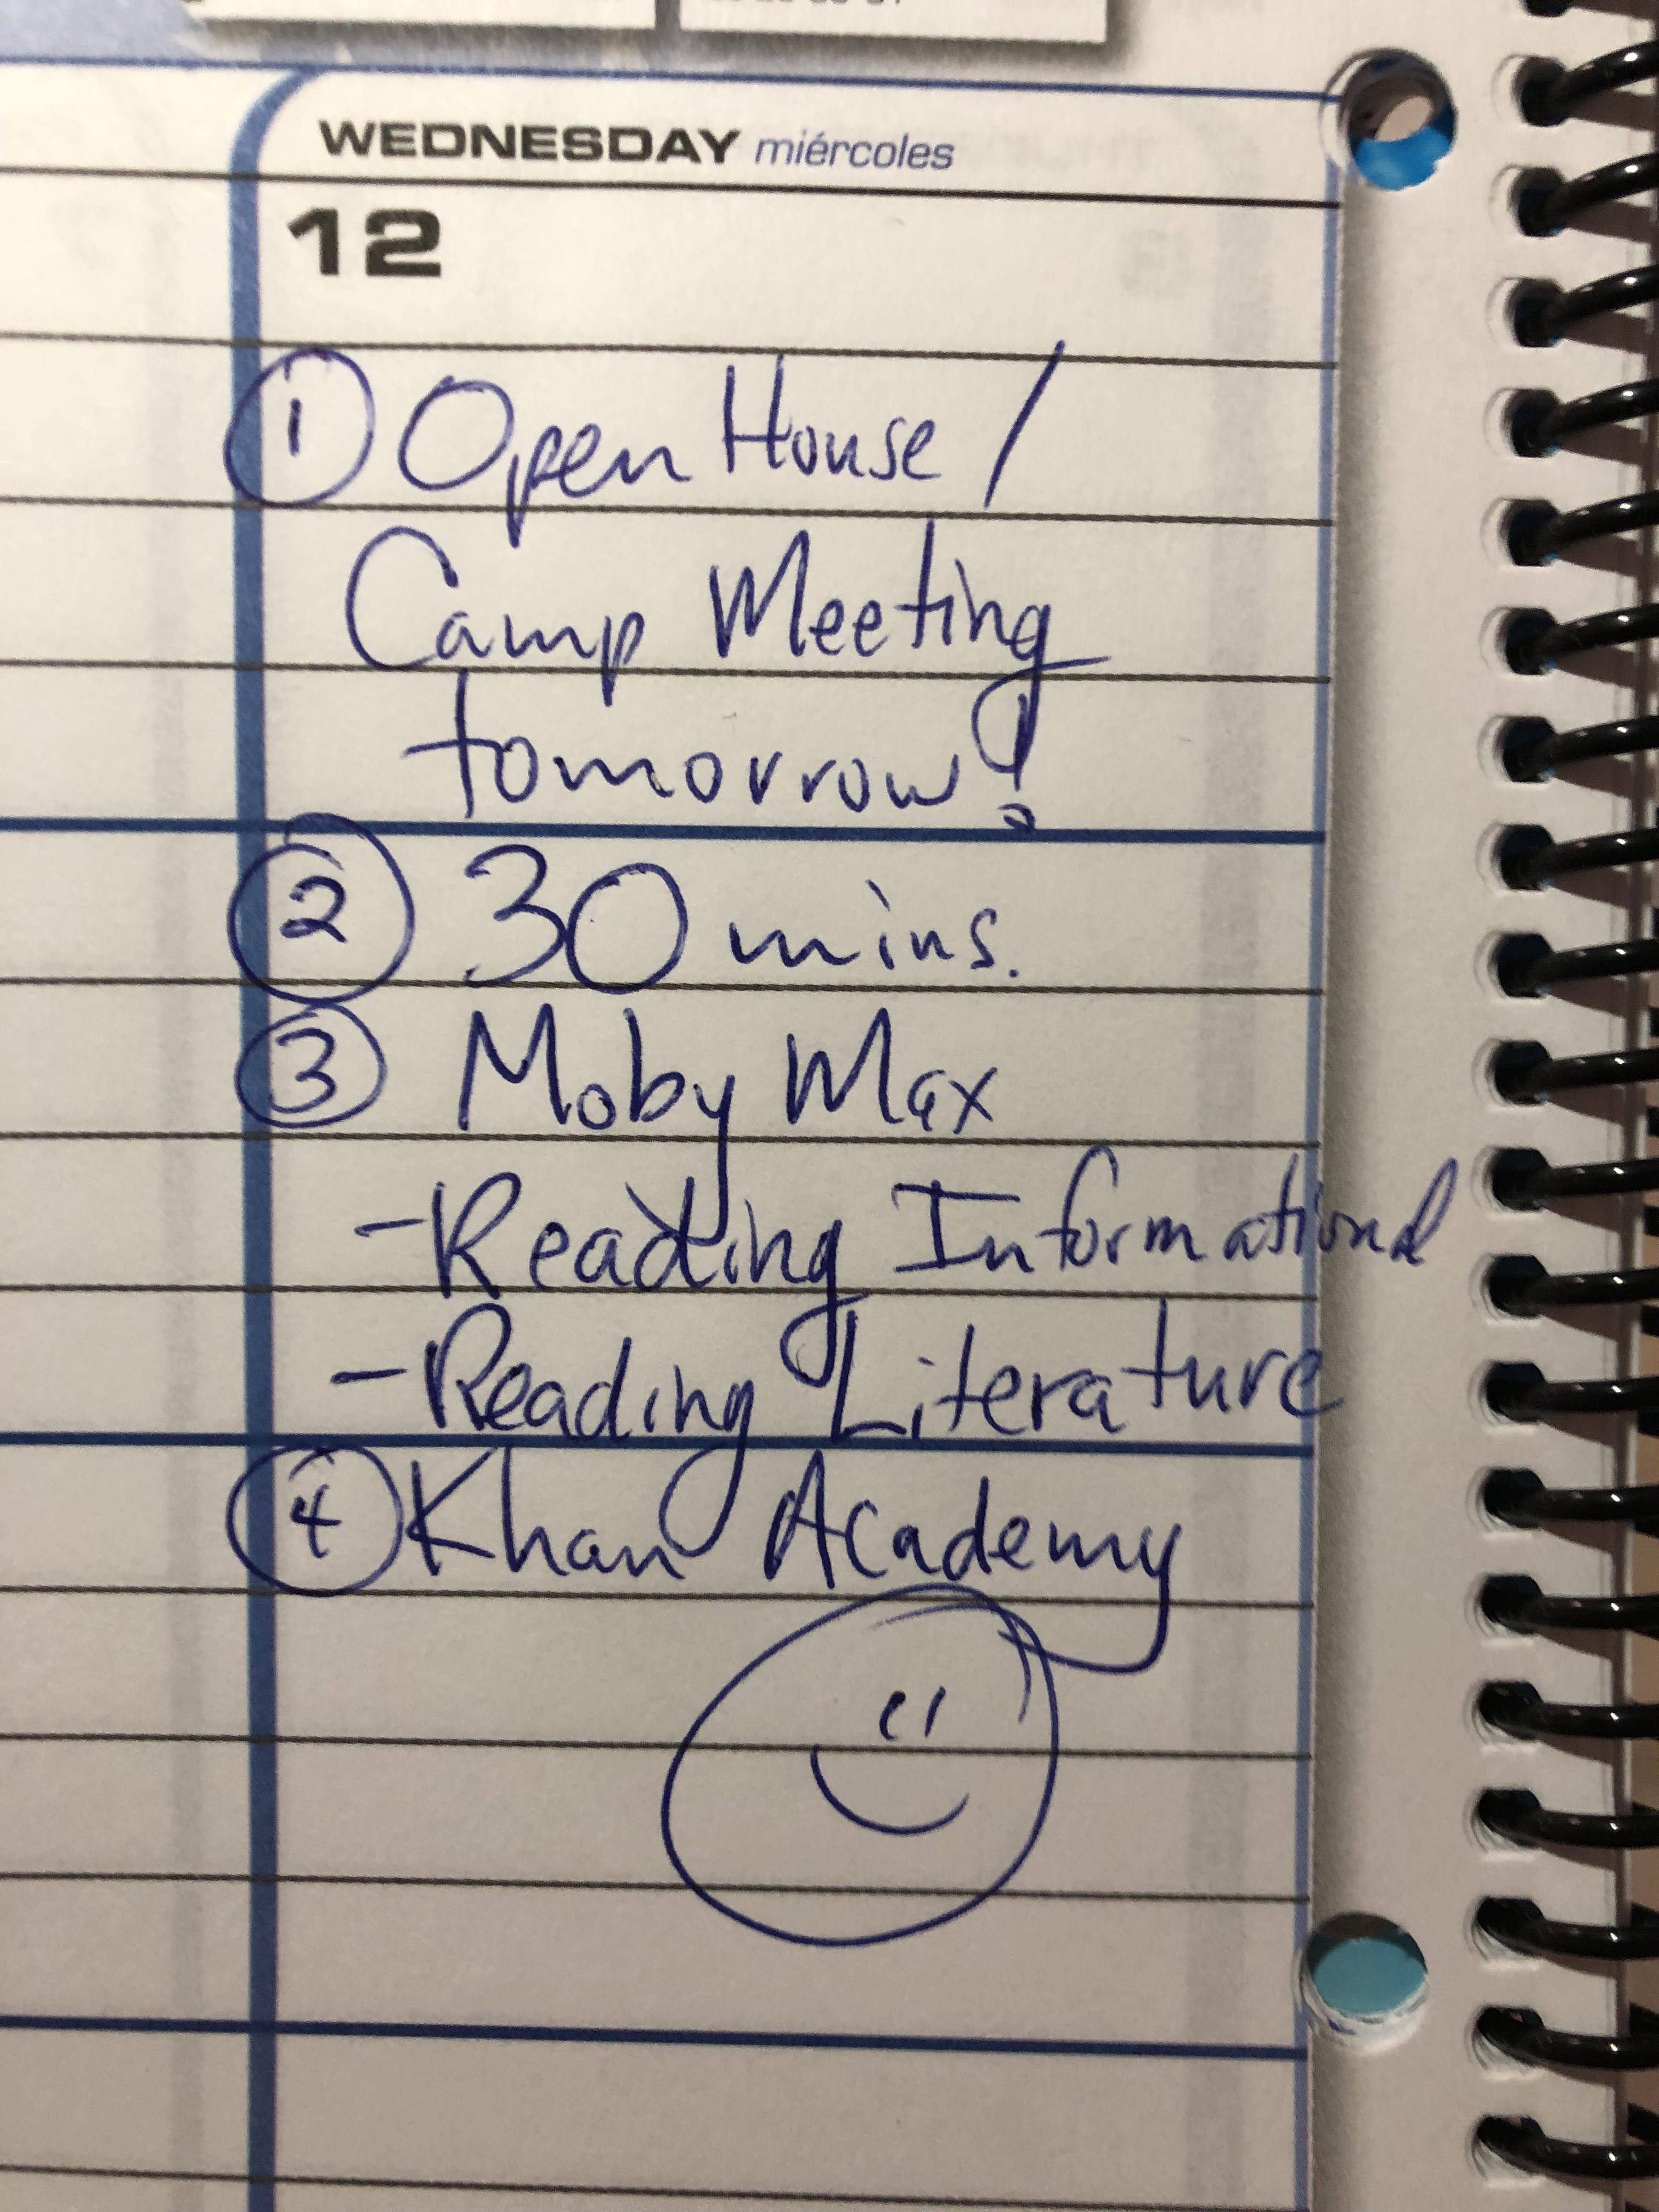 WEDNESDAY miércoles
12
① Open House /
Camp Meeting
tomorrow!
② 30 mins.
③ Moby Max
- Reading Informational
- Reading Literature
④ Khan Academy